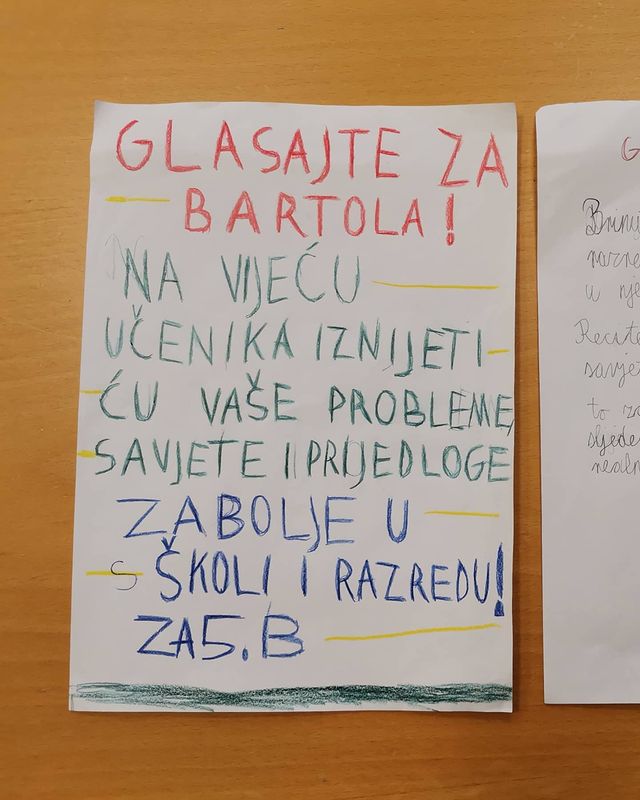 GLASAJTE ZA
BARTOLA!
NA VIJEĆU
UČENIKA IZNIJETI
ĆU VAŠE PROBLEME,
SAVJETE I PRIJEDLOGE
ZA BOLJE U
ŠKOLI I RAZREDU!
ZA 5.B
G
Brinu
razne
u nje
Recite
savjet
to za
sljede
realn